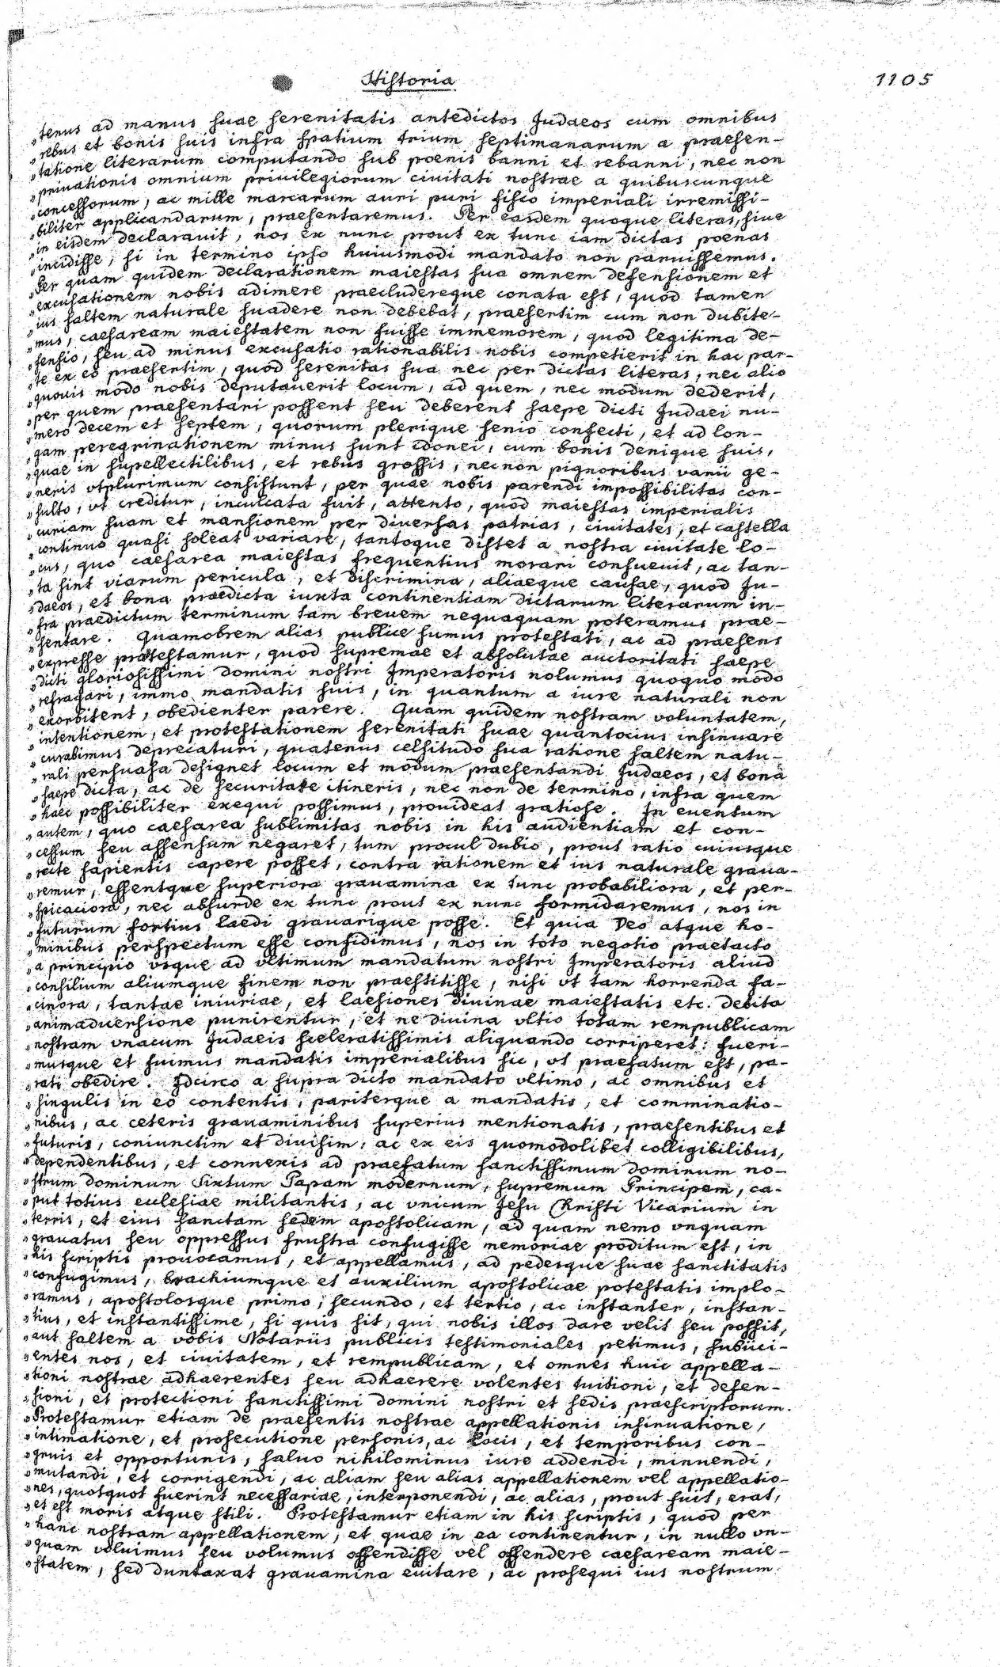 Historia
1105
„tenus ad manus suae serenitatis antedictos Judaeos cum omnibus
„rebus et bonis suis infra spatium trium septimanarum a praesen-
„tatione literarum computando sub poenis banni et rebanni, nec non
„privationis omnium privilegiorum civitati nostrae a quibuscunque
„concessorum, ac mille marcarum auri puri fisco imperiali irremissi-
„biliter applicandarum, praesentaremus. Per easdem quoque literas, sive
„in eisdem declaravit, nos ex nunc prout ex tunc iam dictas poenas
„incidisse, si in termino ipso huiusmodi mandato non paruissemus.
„Per quam quidem declarationem maiestas sua omnem defensionem et
„excusationem nobis adimere praecludereque conata est, quod tamen
„ius saltem naturale suadere non debebat, praesertim cum non dubite-
„mus, caesaream maiestatem non fuisse immemorem, quod legitima de-
„fensio, seu ad minus excusatio rationabilis nobis competierit in hac par-
„te ex eo praesertim, quod serenitas sua nec per dictas literas, nec alio
„quovis modo nobis deputaverit locum, ad quem, nec modum dederit,
„per quem praesentari possent seu deberent saepe dicti Judaei nu-
„mero decem et septem, quorum plerique senio confecti, et ad lon-
„gam peregrinationem minus sunt idonei, cum bonis denique suis,
„quae in supellectilibus, et rebus grossis, necnon pignoribus varii ge-
„neris vtplurimum consistunt, per quae nobis parendi impossibilitas con-
„sulto, vt creditur, inculcata fuit, attento, quod maiestas imperialis
„curiam suam et mansionem per diversas patrias, civitates, et castella
„continuo quasi soleat variare, tantoque distet a nostra civitate lo-
„cus, quo caesarea maiestas frequentius morari consuevit, ac tan-
„ta sint viarum pericula, et discrimina, aliaeque causae, quod Ju-
„daeos, et bona praedicta iuxta continentiam dictarum literarum in-
„fra praedictum terminum tam brevem nequaquam poteramus prae-
„sentare. Quamobrem alias publice sumus protestati, ac ad praesens
„expresse protestamur, quod supremae et absolutae auctoritati saepe
„dicti gloriosissimi domini nostri Imperatoris nolumus quoquo modo
„refragari, immo mandatis suis, in quantum a iure naturali non
„exorbitent, obedienter parere. Quam quidem nostram voluntatem,
„intentionem, et protestationem serenitati suae quantocius insinuare
„curabimus deprecaturi, quatenus celsitudo sua ratione saltem natu-
„rali persuasa designet locum et modum praesentandi Judaeos, et bona
„saepe dicta, ac de securitate itineris, nec non de termino, infra quem
„haec possibiliter exequi possimus, provideat gratiose. In euentum
„autem, quo caesarea sublimitas nobis in his audientiam et con-
„cessum seu assensum negaret, tum procul dubio, prout ratio cuiusque
„recte sapientis capere posset, contra rationem et ius naturale grava-
„remur, essentque superiora gravamina ex tunc probabiliora, et per-
„spicaciora, nec absurde ex tunc prout ex nunc formidaremus, nos in
„futurum fortius laedi gravarique posse. Et quia Deo atque ho-
„minibus perspectum esse confidimus, nos in toto negotio praetacto
„a principio vsque ad vltimum mandatum nostri Imperatoris aliud
„consilium aliumque finem non praestitisse, nisi vt tam horrenda fa-
„cinora, tantae iniuriae, et laesiones divinae maiestatis etc. debita
„animadversione punirentur, et ne divina vltio totam rempublicam
„nostram vnacum Judaeis sceleratissimis aliquando corriperet: fueri-
„musque et fuimus mandatis imperialibus sic, vt praefatum est, pa-
„rati obedire. Idcirco a supra dicto mandato vltimo, ac omnibus et
„singulis in eo contentis, pariterque a mandatis, et comminatio-
„nibus, ac ceteris gravaminibus superius mentionatis, praesentibus et
„futuris, coniunctim et divisim, ac ex eis quomodolibet colligibilibus,
„dependentibus, et connexis ad praefatum sanctissimum dominum no-
„strum dominum Sixtum Papam modernum, supremum Principem, ca-
„put totius ecclesiae militantis, ac vnicum Jesu Christi Vicarium in
„terris, et eius sanctam sedem apostolicam, ad quam nemo vnquam
„gravatus seu oppressus frustra confugisse memoriae proditum est, in
„his scriptis provocamus, et appellamus, ad pedesque suae sanctitatis
„confugimus, brachiumque et auxilium apostolicae potestatis implo-
„ramus, apostolosque primo, secundo, et tertio, ac instanter, instan-
„tius, et instantissime, si quis sit, qui nobis illos dare velit seu possit,
„aut saltem a vobis Notariis publicis testimoniales petimus, subiici-
„entes nos, et civitatem, et rempublicam, et omnes huic appella-
„tioni nostrae adhaerentes seu adhaerere volentes tuitioni, et defen-
„sioni, et protectioni sanctissimi domini nostri et sedis praescriptorum.
„Protestamur etiam de praesentis nostrae appellationis insinuatione,
„intimatione, et prosecutione personis, ac locis, et temporibus con-
„gruis et opportunis, salvo nihilominus iure addendi, minuendi,
„mutandi, et corrigendi, ac aliam seu alias appellationem vel appellatio-
„nes, quotquot fuerint necessariae, interponendi, ac alias, prout fuit, erat,
„et est moris atque stili. Protestamur etiam in his scriptis, quod per
„hanc nostram appellationem, et quae in ea continentur, in nullo vn-
„quam voluimus seu volumus offendisse vel offendere caesaream maie-
„statem, sed duntaxat gravamina evitare, ac prosequi ius nostrum